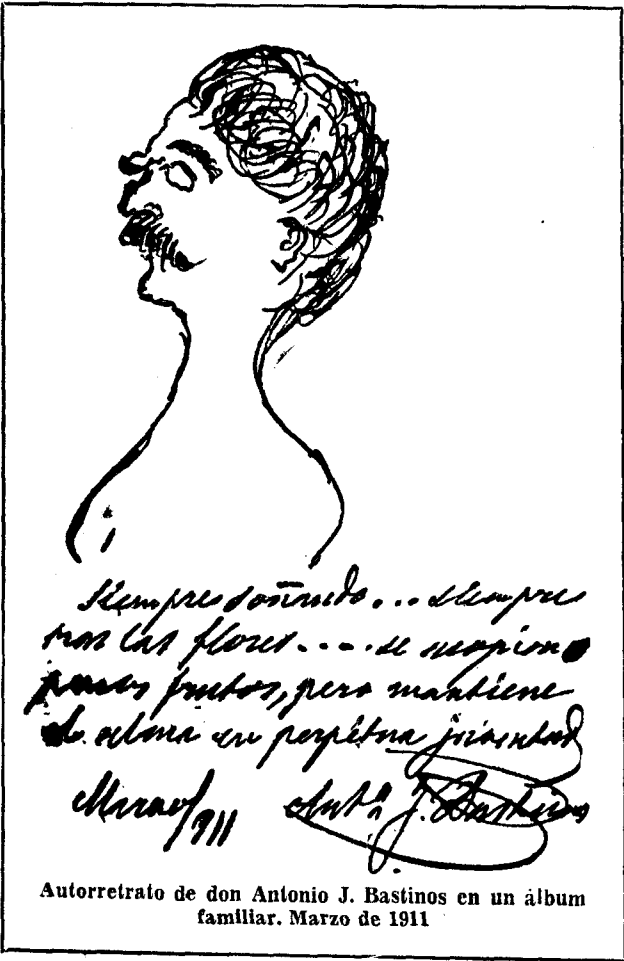 Siempre soñando... siempre
tras las flores.... se
pocos frutos, pero mantiene
el alma en perpétua juventud
Marzo/911 Antº J. Bastinos
Autorretrato de don Antonio J. Bastinos en un álbum
familiar. Marzo de 1911